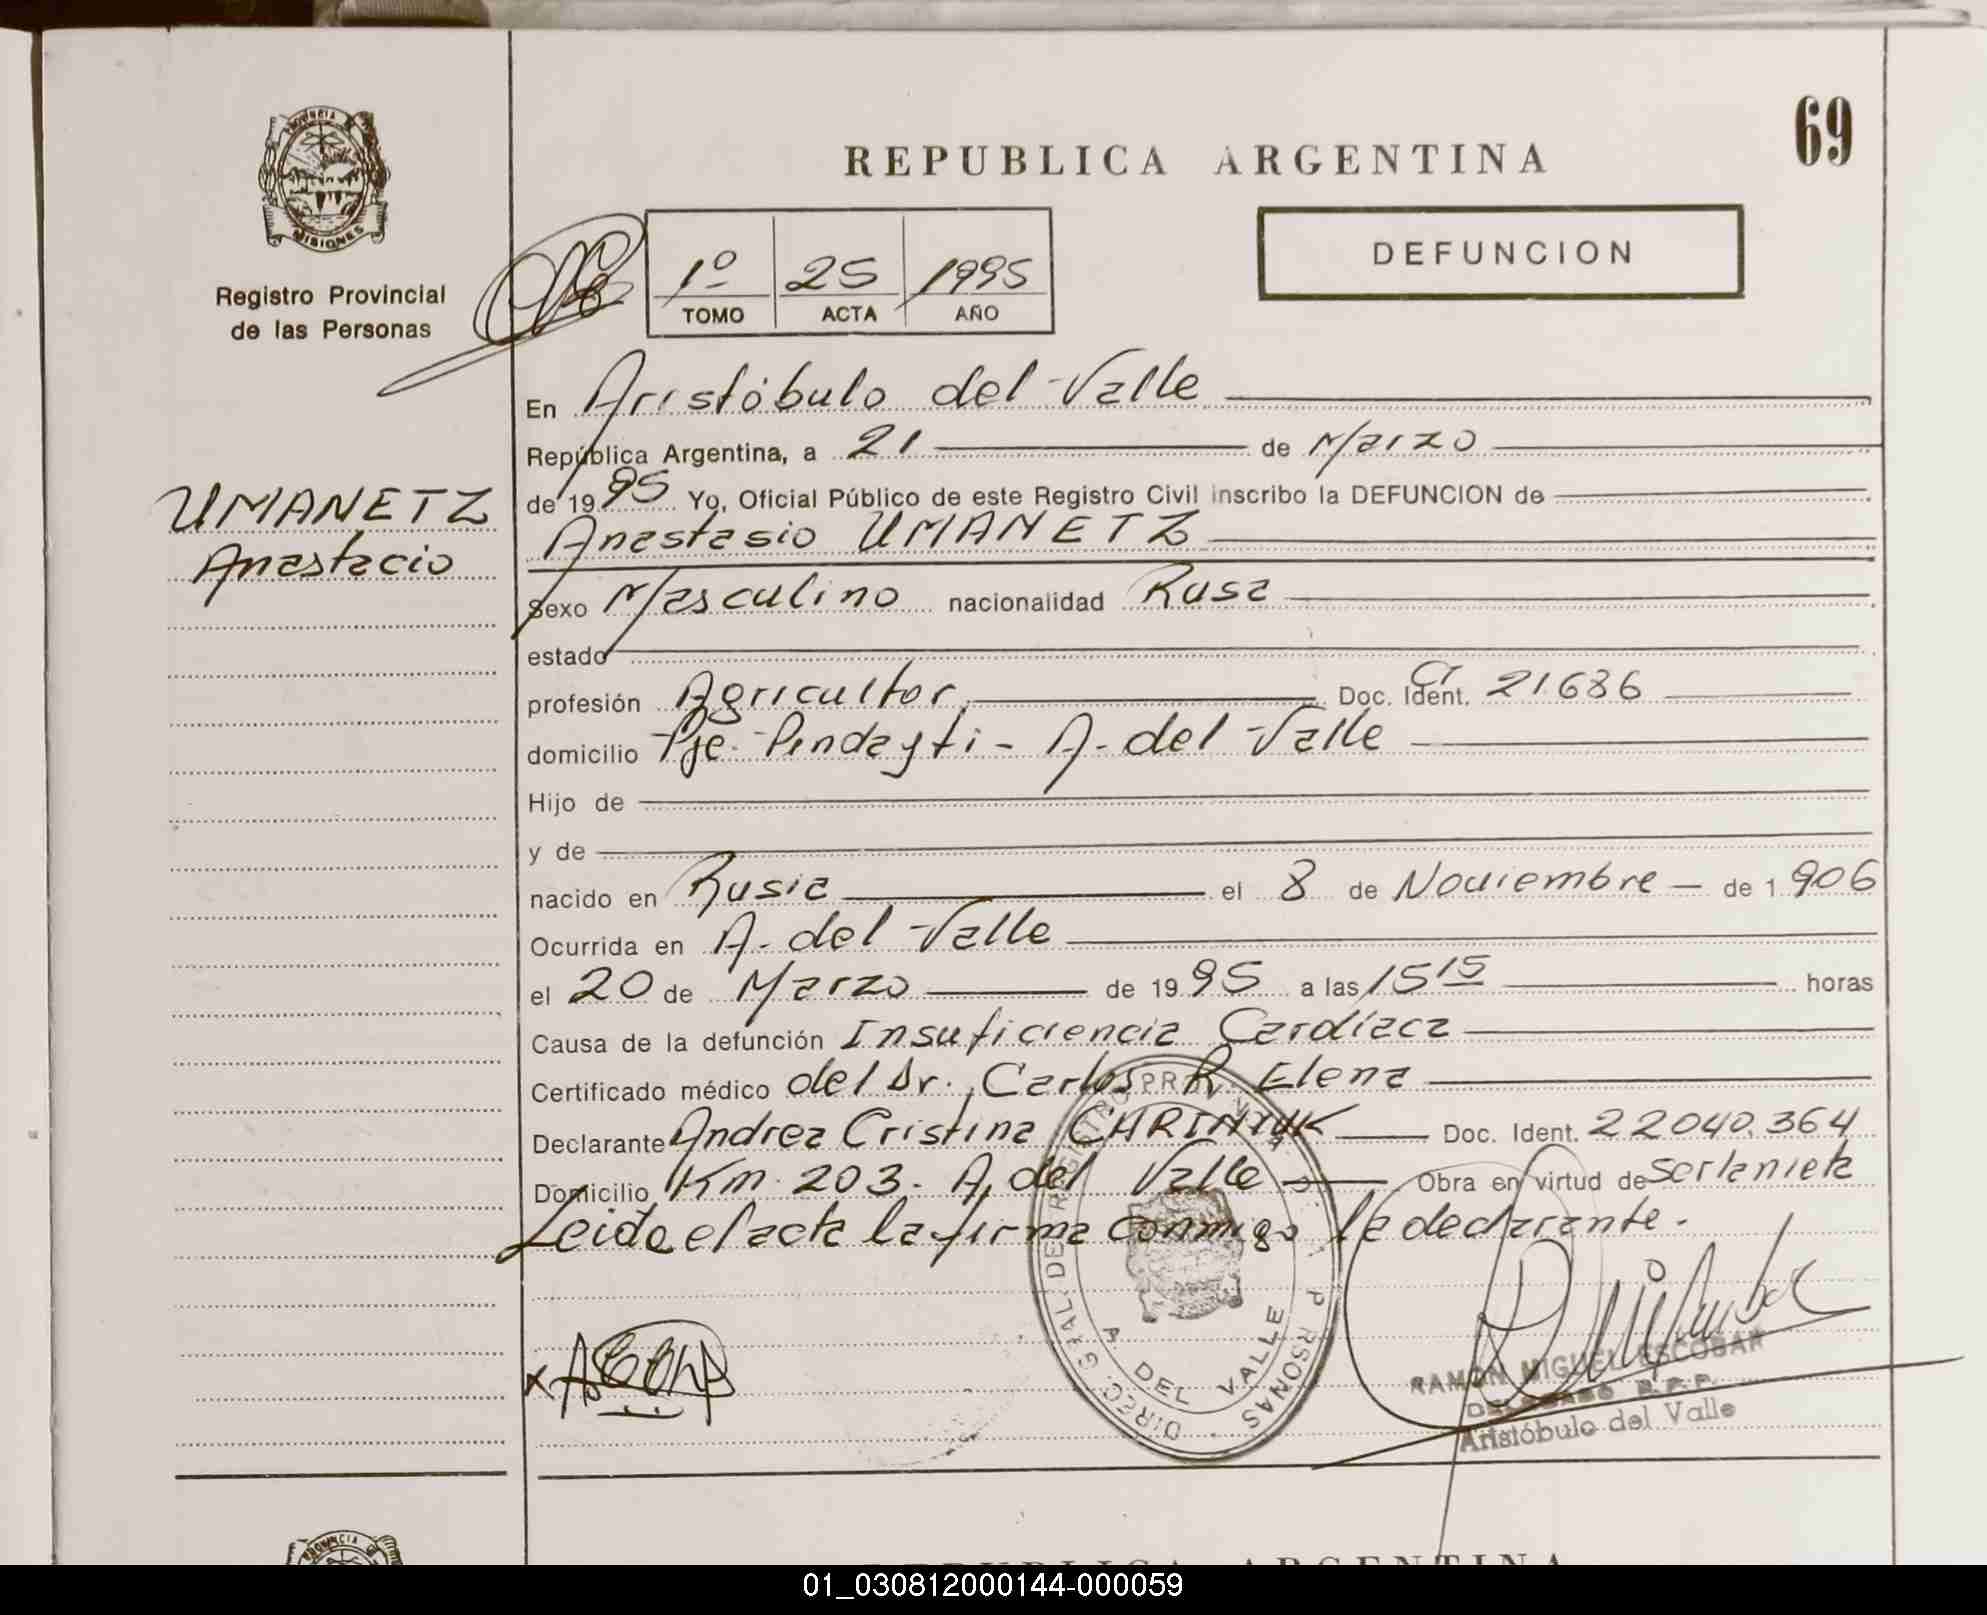 69
REPUBLICA ARGENTINA
PROVINCIA DE
MISIONES
DEFUNCION
Registro Provincial
de las Personas
1º 25 1995
TOMO ACTA AÑO
En Aristóbulo del Valle
República Argentina, a 21 de Marzo
de 1995 Yo, Oficial Público de este Registro Civil inscribo la DEFUNCION de
UMANETZ
Anastacio
Anastasio UMANETZ
Sexo Masculino nacionalidad Rusa
estado
profesión Agricultor Doc. Ident. CI 21.686
domicilio Pje. Pindayti - A. del Valle
Hijo de
y de
nacido en Rusia el 8 de Noviembre de 1906
Ocurrida en A. del Valle
el 20 de Marzo de 1995 a las 15 15 horas
Causa de la defunción Insuficiencia Cardíaca
Certificado médico del Dr. Carlos R. Elena
Declarante Andrea Cristina CHRINIUK Doc. Ident. 22040.364
Domicilio Km. 203. A. del Valle Obra en virtud de ser la nieta
Leida el acta la firma conmigo la declarante.
DIREC. GRAL. DE REGISTRO PROV. PERSONAS
A. DEL VALLE
RAMON MIGUEL ESCOBAR
DELEGADO R.P.P.
Aristóbulo del Valle
PROVINCIA
REPUBLICA ARGENTINA
01_030812000144-000059